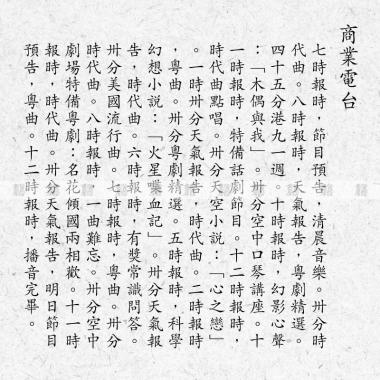 商業電台
七時報時，節目預告，清晨音樂。卅分時
代曲。八時報時，天氣報告，粵劇精選。
四十五分港九一週。十時報時，幻影心聲
：「木偶與我」。卅分空中口琴講座。十
一時報時，特備話劇節目。十二時報時，
時代曲點唱。卅分天空小說：「心之戀」
。一時卅分天氣報告，時代曲。二時報時
，粵曲。卅分粵劇精選。五時報時，科學
幻想小說：「火星喋血記」。卅分天氣報
告，時代曲。六時報時，有獎常識問答。
卅分美國流行曲。七時報時，粵曲。卅分
時代曲。八時報時，一曲難忘。卅分空中
劇場特備粵劇：名花傾國兩相歡。十一時
報時，時代曲。卅分天氣報告，明日節目
預告，粵曲。十二時報時，播音完畢。